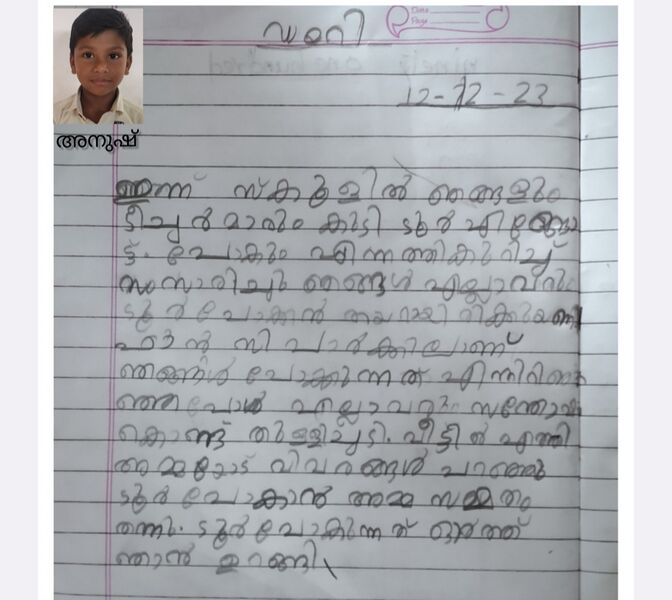 Date:
Page:
ഡയറി
12-12-23
അനുഷ്
ഇന്ന് സ്കൂളിൽ ഞങ്ങളും
ടീച്ചർമാരും കൂടി ടൂർ എങ്ങോ
ട്ട്. പോകും എന്നത്തികുറിച്ച്
സംസാരിച്ചു ഞങ്ങൾ എല്ലാവരും
ടൂർ പോകാൻ തയാറായി നിക്കുയണ്
സി പാർക്കിലാണ്
ഞങ്ങൾ പോക്കുന്നത്
ഞ്ഞപോൾ എല്ലാവറും സന്തോഷം
കൊണ്ട് തുള്ളിച്ചടി. വീട്ടിൽ എത്തി
അമ്മയോട് വിവരങ്ങൾ പറഞ്ഞു
ടൂർ പോകാൻ അമ്മ സമ്മതം
തന്നു. ടൂർ പോകുന്നത് ഓർത്ത്
ഞാൻ ഉറങ്ങി